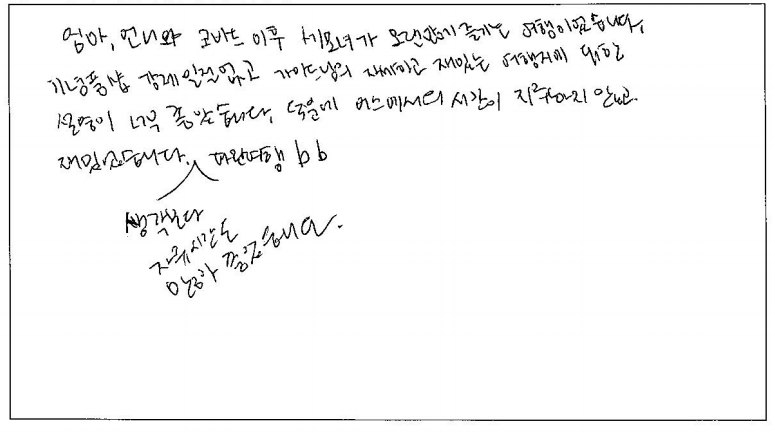 엄마, 언니와 코바드 이후 세모녀가 오랜만에 즐기는 여행이었습니다.
기념품샵 강제일정없고 가이드님의 재미있는 여행지에 대한
설명이 너무 좋았습니다. 덕분에 버스에서의 시간이 지루하지 않고
재밌었습니다. 파란여행 bb
생각보다
자유시간도
많아 좋았습니다.